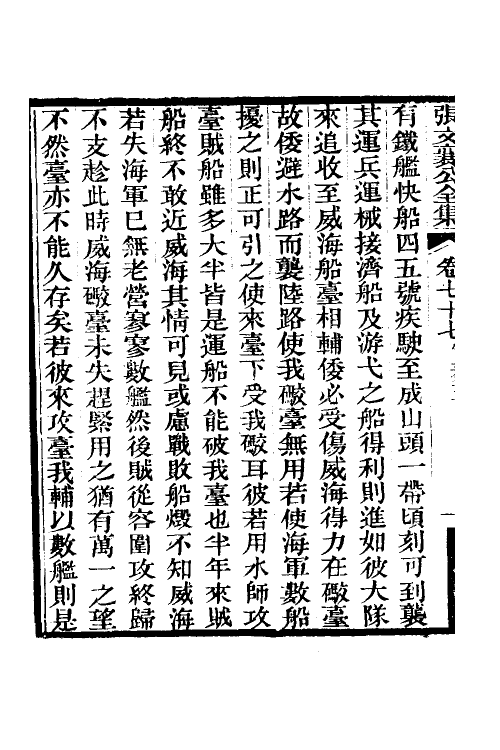 張文襄公全集 卷七十七
有鐵艦快船四五號疾駛至成山頭一帶頃刻可到襲
其運兵運械接濟船及游弋之船得利則進如彼大隊
來追收至威海船臺相輔倭必受傷威海得力在礮臺
故倭避水路而襲陸路使我礮臺無用若使海軍數船
擾之則正可引之使來臺下受我礮耳彼若用水師攻
臺賊船雖多大半皆是運船不能破我臺也半年來賊
船終不敢近威海其情可見或慮戰敗船燬不知威海
若失海軍巳無老營寥寥數艦然後賊從容圍攻終歸
不支趁此時威海礮臺未失趕緊用之猶有萬一之望
不然臺亦不能久存矣若彼來攻臺我輔以數艦則是